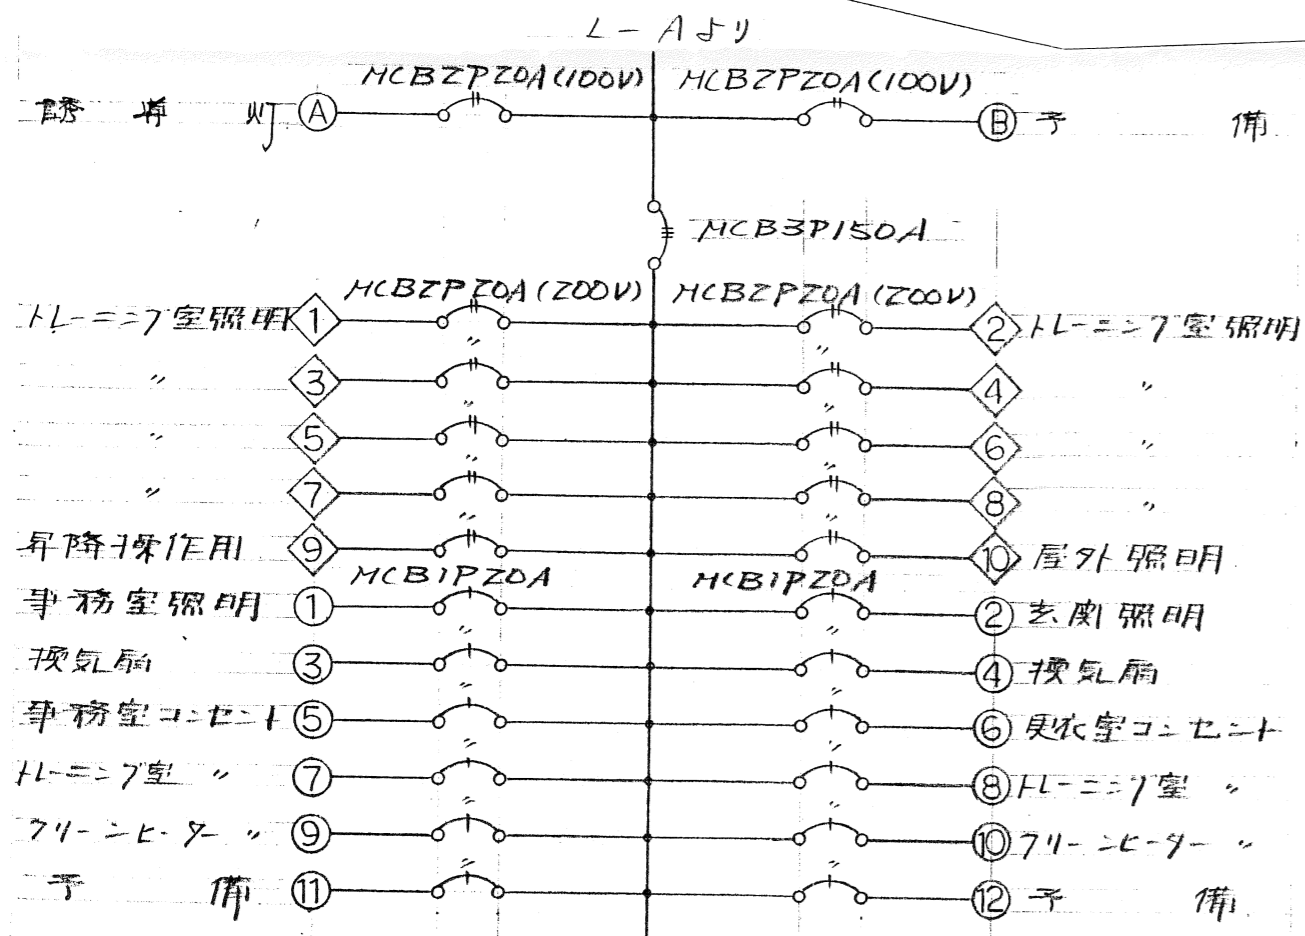 L-Aより
MCB2P20A(100V) MCB2P20A(100V)
誘導灯 A B 予備
MCB3P150A
MCB2P20A(200V) MCB2P20A(200V)
トレーニング室照明 1 2 トレーニング室照明
〃 〃
〃 3 4 〃
〃 〃
〃 5 6 〃
〃 〃
〃 7 8 〃
〃 〃
昇降操作用 9 10 屋外照明
MCB1P20A MCB1P20A
事務室照明 1 2 玄関照明
〃 〃
換気扇 3 4 換気扇
〃 〃
事務室コンセント 5 6 更衣室コンセント
〃 〃
トレーニング室 〃 7 8 トレーニング室 〃
〃 〃
クリーンヒーター 〃 9 10 クリーンヒーター 〃
〃 〃
予備 11 12 予備